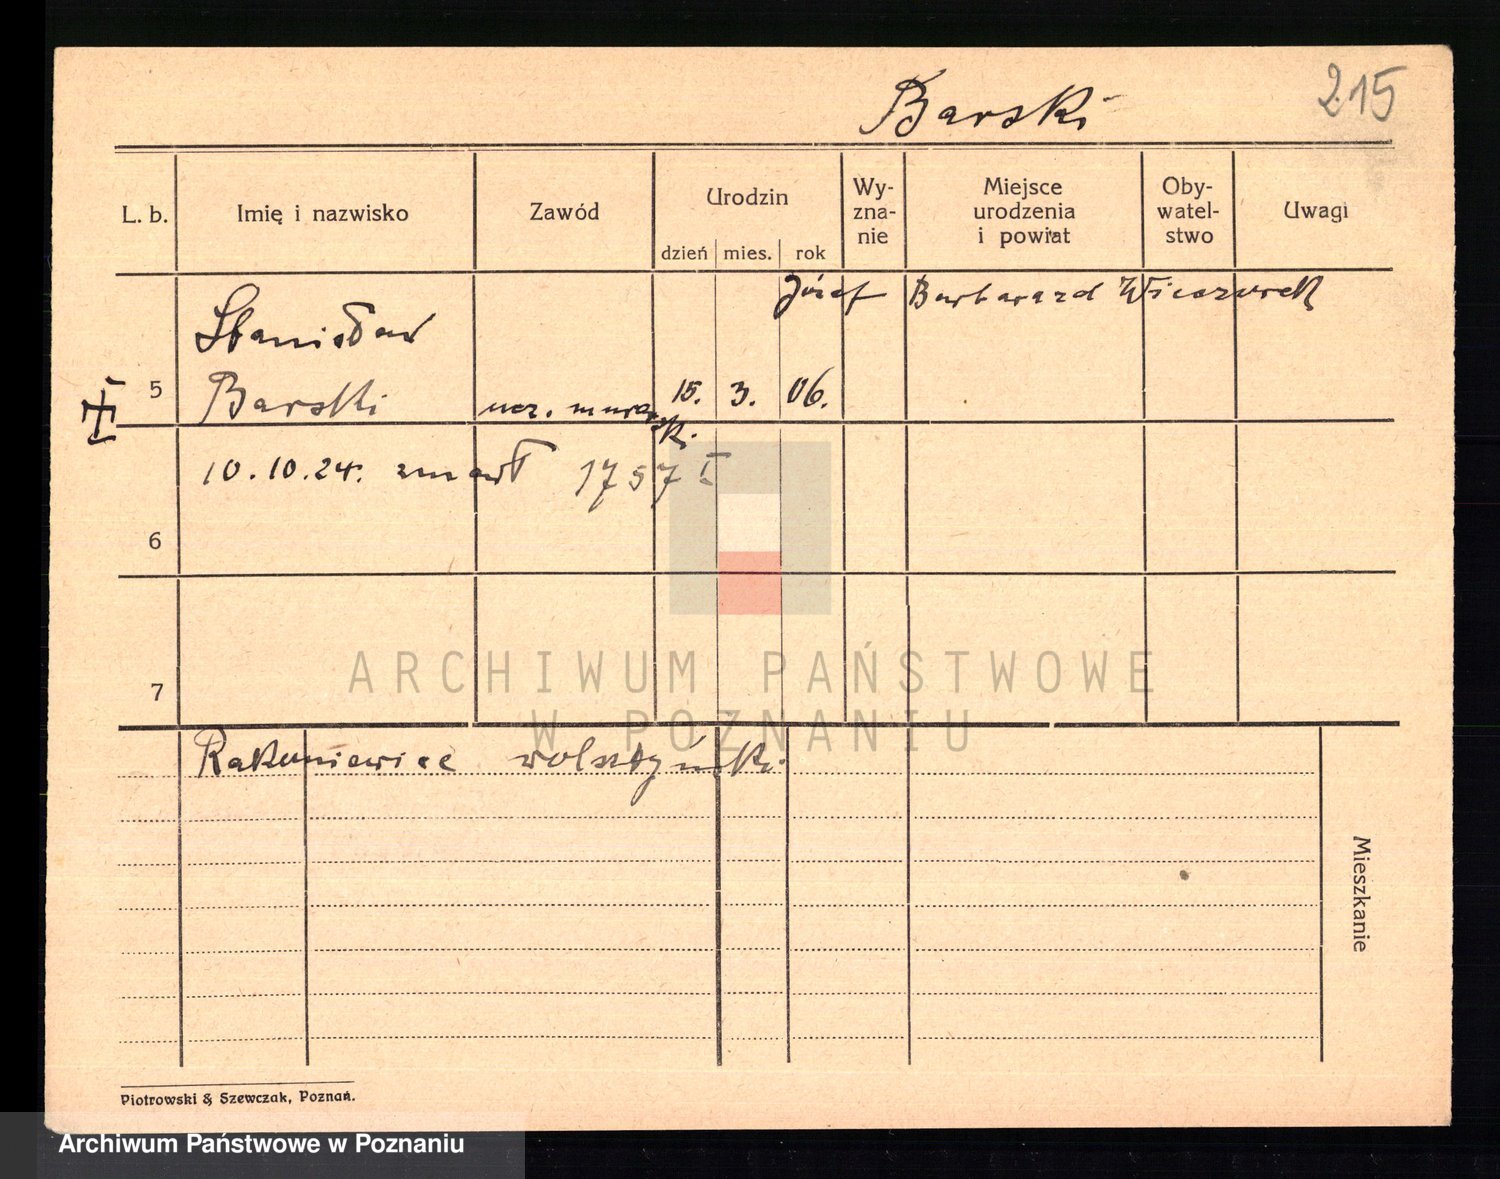 215
Barski
L. b.
Imię i nazwisko
Zawód
Urodzin
dzień mies. rok
Wy-
zna-
nie
Miejsce
urodzenia
i powiat
Oby-
watel-
stwo
Uwagi
Józef Barbara zd Wieczorek
Stanisław
5 Barski ucz. murarski. 15. 3. 06.
10.10.24. zmarł 1757 I
6
7
ARCHIWUM PAŃSTWOWE
W POZNANIU
Rakoniewice wolsztyńsk.
Mieszkanie
Piotrowski & Szewczak, Poznań.
Archiwum Państwowe w Poznaniu